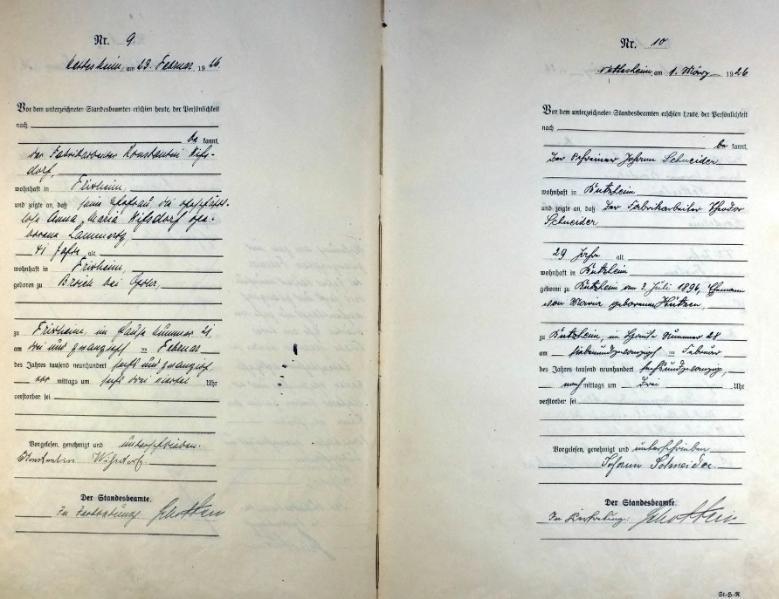 Nr. 9
Nettesheim, am 23. Februar 1926
Vor dem unterzeichneten Standesbeamten erschien heute, der Persönlichkeit
nach
be kannt,
der Fabrikarbeiter Konstantin
dorf,
wohnhaft in Frixheim,
und zeigte an, daß seine Ehefrau die geschäfts-
lose Anna Maria ge-
borene Lammertz,
41 Jahre alt
wohnhaft in Frixheim,
geboren zu Broich bei
zu Frixheim, im Hause Nummer 21
am drei und zwanzigsten Februar
des Jahres tausend neunhundert sechs und zwanzig
vor mittags um Uhr
verstorben sei
Vorgelesen, genehmigt und unterschrieben.
Konstantin
Der Standesbeamte.
In Vertretung
Nr. 10
Nettesheim, am 1. März 1926
Vor dem unterzeichneten Standesbeamten erschien heute, der Persönlichkeit
nach
be kannt,
der Schreiner Johann Schneider
wohnhaft in Butzheim
und zeigte an, daß der Fabrikarbeiter Theodor
Schneider
29 Jahre alt
wohnhaft in Butzheim
geboren zu Butzheim am 2. Juli 1896, Ehemann
von Maria geborenen
zu Butzheim, im Hause Nummer 28
am siebenundzwanzigsten Februar
des Jahres tausend neunhundert sechsundzwanzig,
nach mittags um drei Uhr
verstorben sei
Vorgelesen, genehmigt und unterschrieben
Johann Schneider.
Der Standesbeamte.
In Vertretung
St-H-R